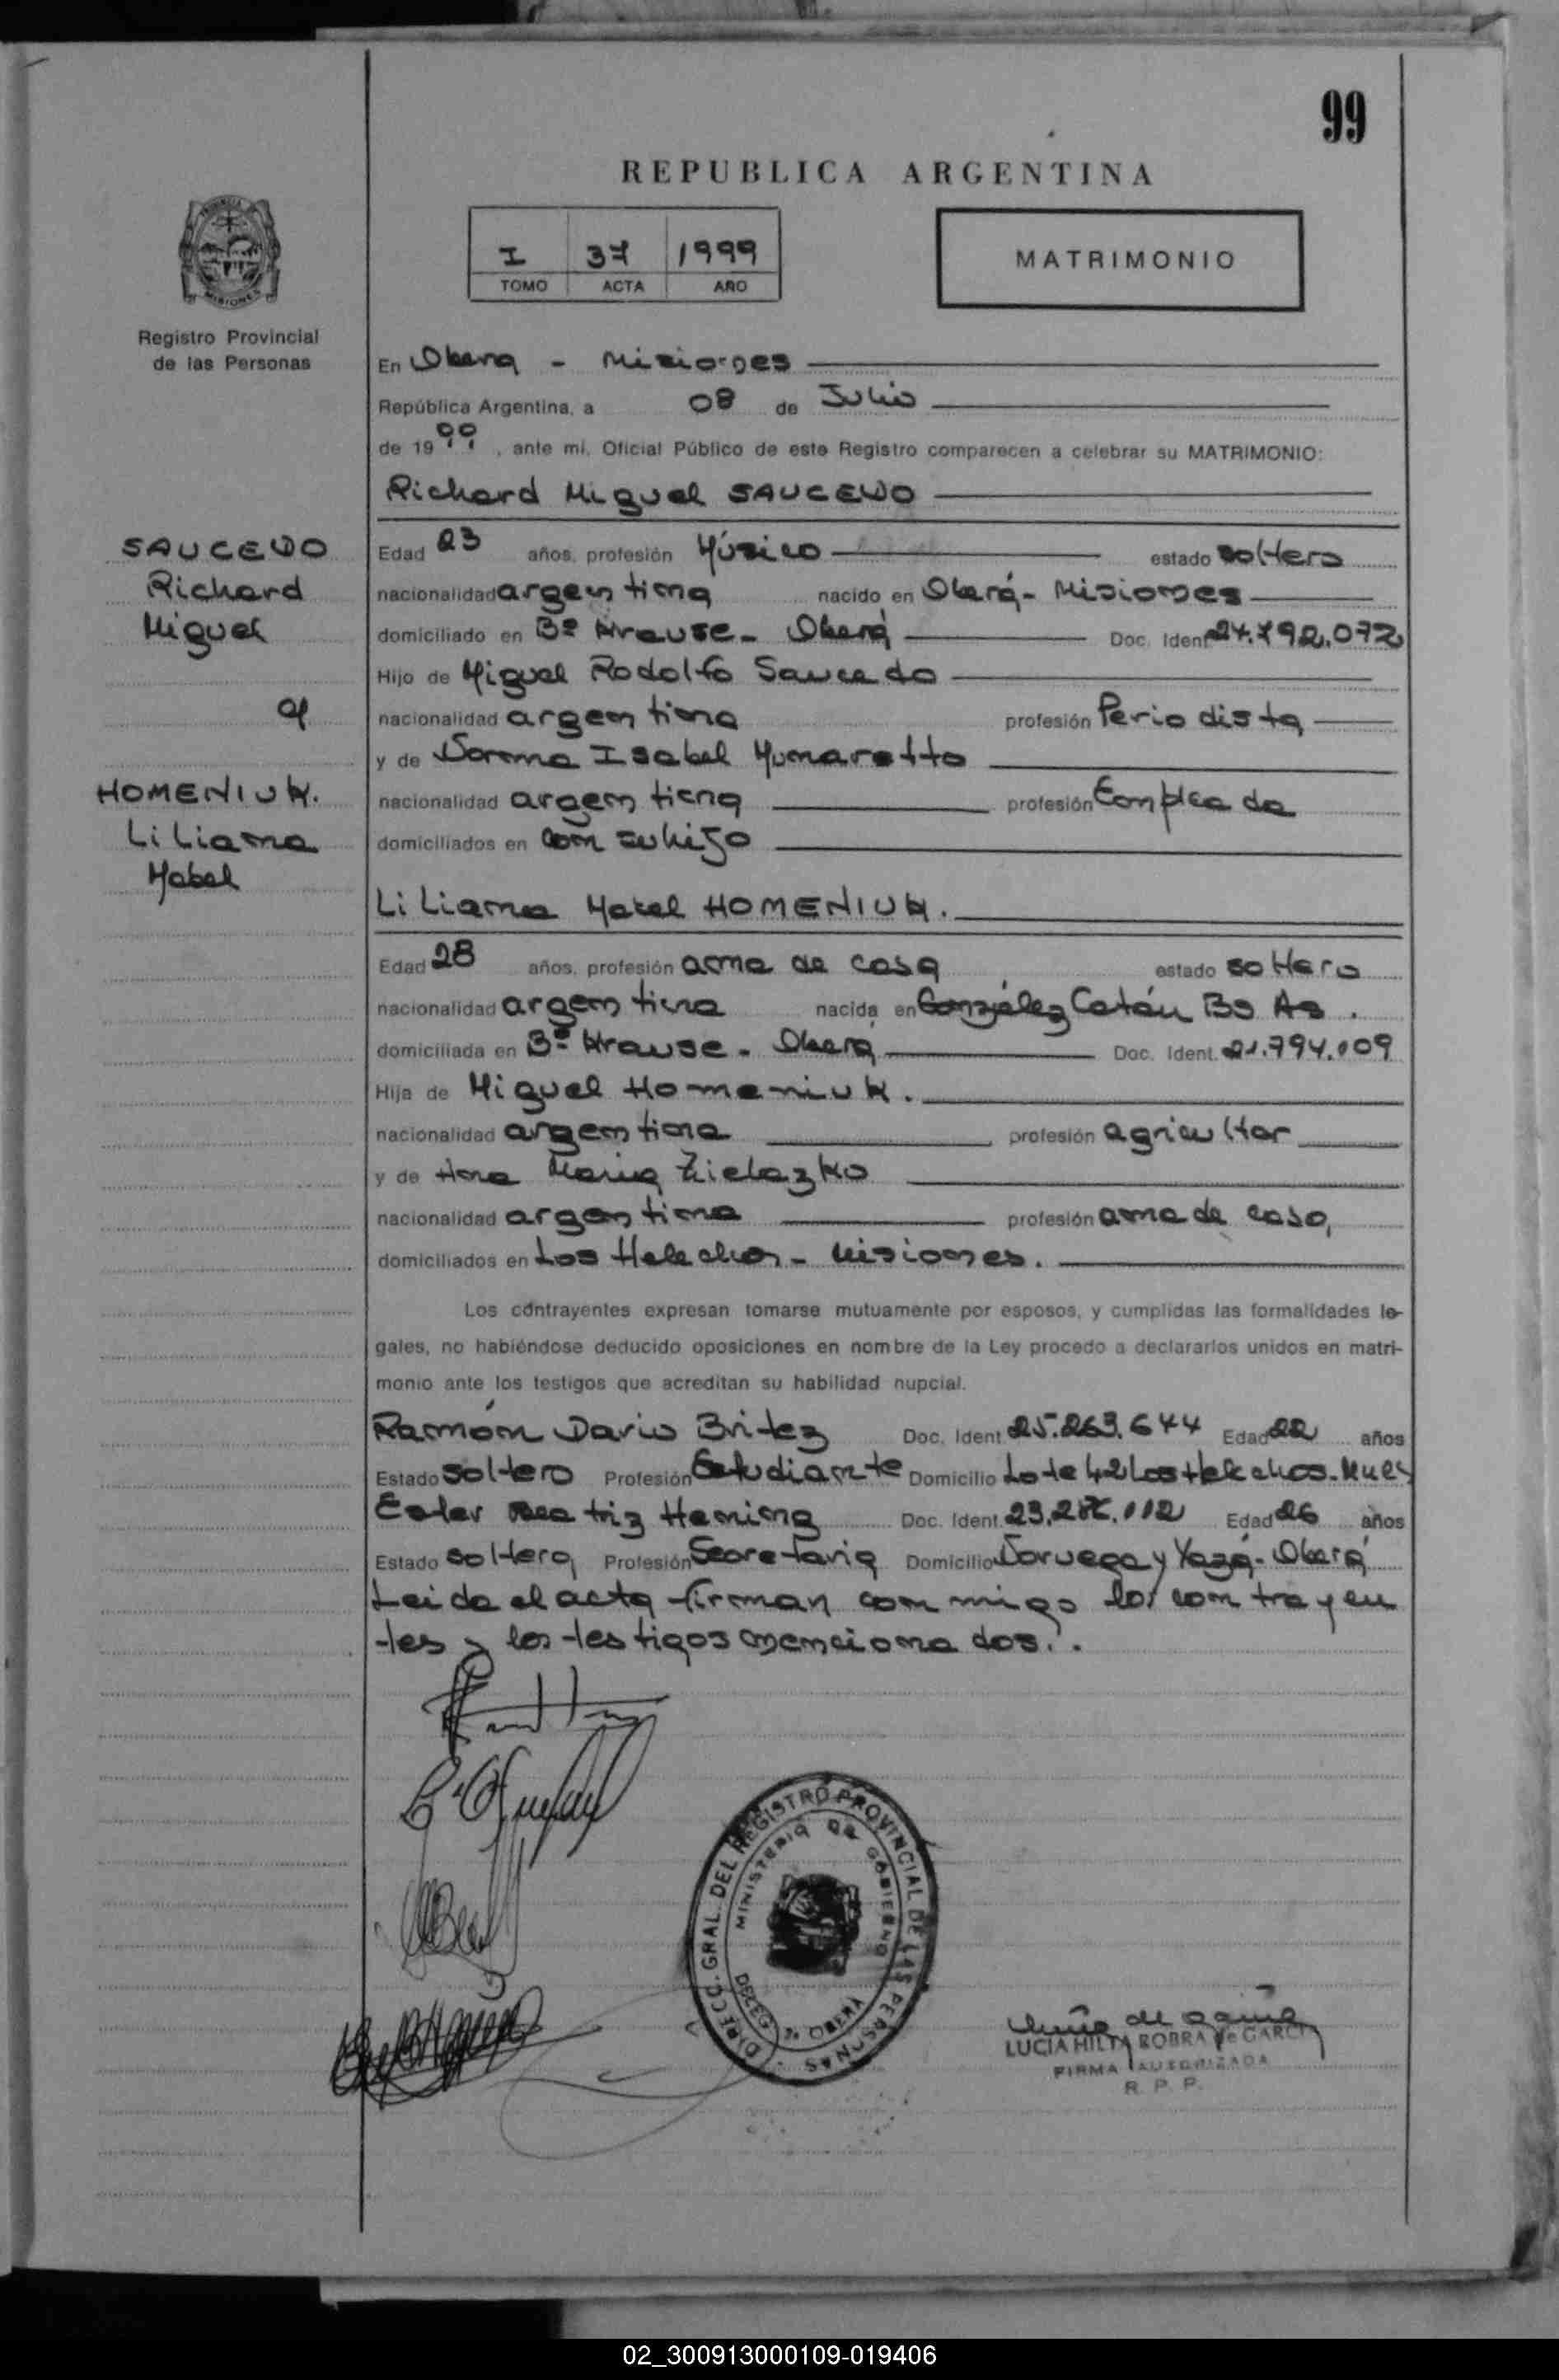 99
REPUBLICA ARGENTINA
I 37 1999
TOMO ACTA AÑO
MATRIMONIO
PROVINCIA DE
MISIONES
Registro Provincial
de las Personas
En Obera - Misiones
República Argentina, a 08 de Julio
de 1999, ante mi, Oficial Público de este Registro comparecen a celebrar su MATRIMONIO:
Richard Miguel SAUCEDO
SAUCEDO
Richard
Miguel
Edad 23 años, profesión Músico estado soltero
nacionalidad argentina nacido en Oberá - Misiones
domiciliado en Bº Krause - Oberá Doc. Ident. 24.792.072
Hijo de Miguel Rodolfo Saucedo
nacionalidad argentina profesión Periodista
y de Norma Isabel Mumaretto
nacionalidad argentina profesión Empleada
domiciliados en con su hijo
HOMENIUK.
Liliana
Mabel
Liliana Mabel HOMENIUK.
Edad 28 años, profesión ama de casa estado soltera
nacionalidad argentina nacida en González Catán Bs As.
domiciliada en Bº Krause - Oberá Doc. Ident. 21.794.109
Hija de Miguel Homeniuk.
nacionalidad argentina profesión agricultor
y de Ana Maria Zielazko
nacionalidad argentina profesión ama de casa,
domiciliados en Los Helechos - Misiones.
Los contrayentes expresan tomarse mutuamente por esposos, y cumplidas las formalidades le-
gales, no habiéndose deducido oposiciones en nombre de la Ley procedo a declararlos unidos en matri-
monio ante los testigos que acreditan su habilidad nupcial.
Ramón Dario Britez Doc. Ident. 25.263.644 Edad 22 años
Estado soltero Profesión Estudiante Domicilio Lote 42 Los Helechos -
Ester Beatriz Hening Doc. Ident. Edad 26 años
Estado soltera Profesión Secretaria Domicilio Noruega y Yazá - Oberá
Leida el acta firman conmigo los contrayen
tes y los testigos mencionados.
DIRECC. GRAL. DEL REGISTRO PROVINCIAL DE LAS PERSONAS
MINISTERIO DE GOBIERNO
OBERA
LUCIA HILTA ROBRA de GARCIA
FIRMA AUTORIZADA
R. P. P.
02_300913000109-019406